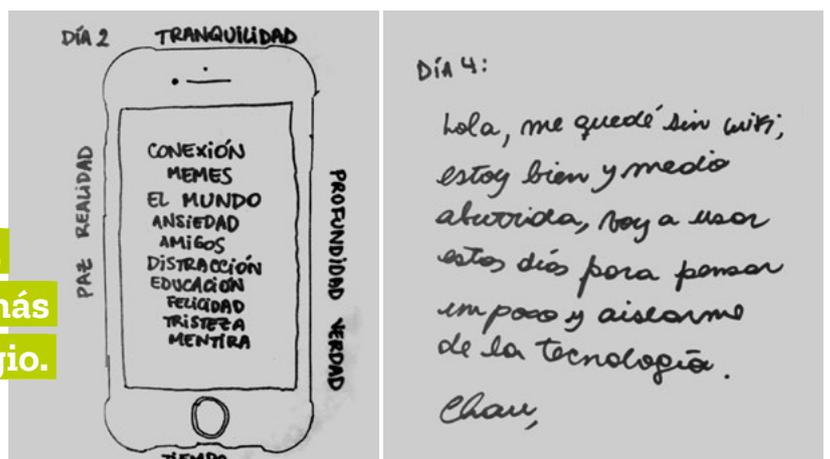 DÍA 2
TRANQUILIDAD
PAZ REALIDAD
CONEXIÓN
MEMES
EL MUNDO
ANSIEDAD
AMIGOS
DISTRACCIÓN
EDUCACIÓN
FELICIDAD
TRISTEZA
MENTIRA
PROFUNDIDAD VERDAD
TIEMPO
más
gio.
DÍA 4:
Lola, me quedé sin wifi,
estoy bien y medio
aburrida, voy a usar
estos días para pensar
un poco y aislarme
de la tecnología.
Chau,